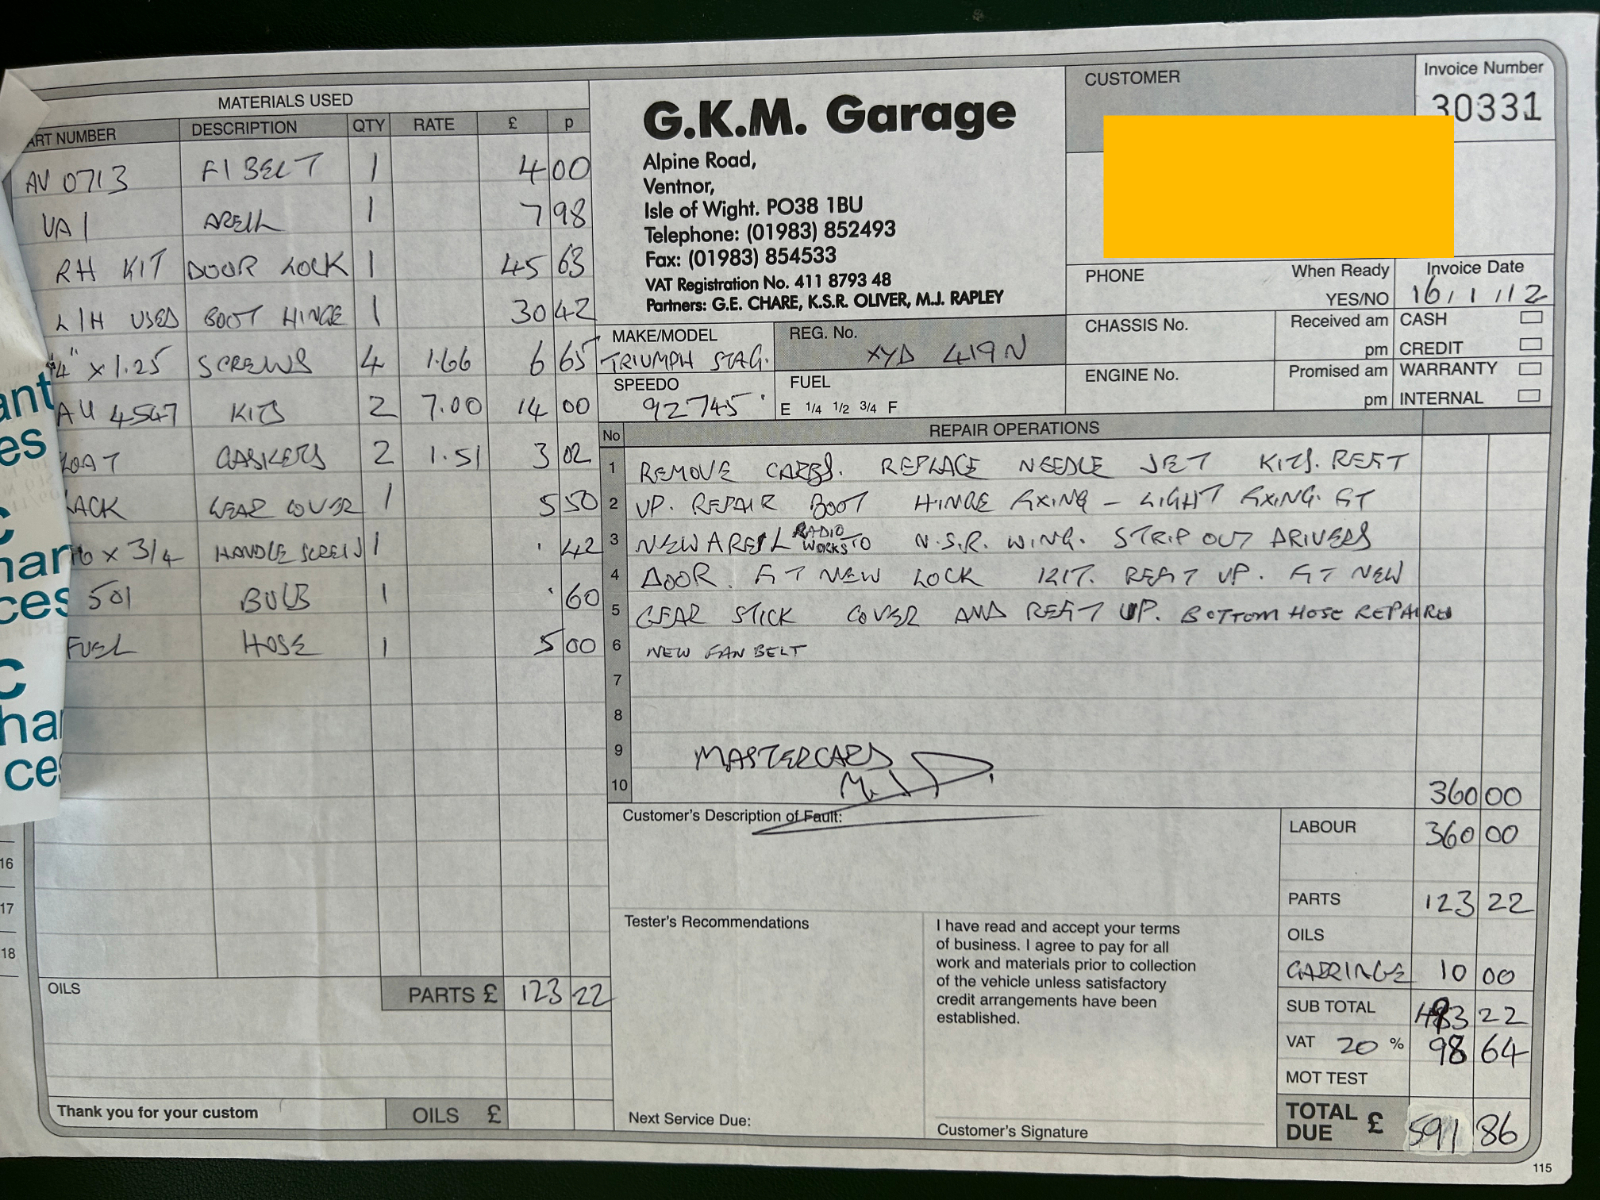 MATERIALS USED
ART NUMBER DESCRIPTION QTY RATE £ p
AV 0713 F/BELT 1 4 00
VA1 AREIL 1 7 98
RH KIT DOOR LOCK 1 45 63
L/H USED BOOT HINGE 1 30 42
1/4" x 1.25 SCREWS 4 1.66 6 65
AU 4547 KITS 2 7.00 14 00
FLOAT GASKETS 2 1.51 3 02
BLACK GEAR COVER 1 5 50
x 3/4 HANDLE SCREWS 1 . 42
501 BULB 1 . 60
FUEL HOSE 1 5 00
OILS
PARTS £ 123 22
Thank you for your custom
OILS £
G.K.M. Garage
Alpine Road,
Ventnor,
Isle of Wight. PO38 1BU
Telephone: (01983) 852493
Fax: (01983) 854533
VAT Registration No. 411 8793 48
Partners: G.E. CHARE, K.S.R. OLIVER, M.J. RAPLEY
CUSTOMER
Invoice Number
30331
PHONE
When Ready
YES/NO
Invoice Date
16/1/12
MAKE/MODEL
TRIUMPH STAG.
REG. No.
XYD 419N
SPEEDO
92745
FUEL
E 1/4 1/2 3/4 F
CHASSIS No.
Received am
pm
CASH
CREDIT
ENGINE No.
Promised am
pm
WARRANTY
INTERNAL
No REPAIR OPERATIONS
1 REMOVE CARBS. REPLACE NEEDLE JET KITS. REFIT
2 UP. REPAIR BOOT HINGE FIXING - LIGHT FIXING. FIT
3 NEW AREIL RADIO WORKS TO N.S.R. WING. STRIP OUT DRIVERS
4 DOOR. FIT NEW LOCK KIT. REFIT UP. FIT NEW
5 GEAR STICK COVER AND REFIT UP. BOTTOM HOSE REPAIRED
6 NEW FAN BELT
7
8
9 MASTERCARD
10 360 00
Customer's Description of Fault:
LABOUR 360 00
PARTS 123 22
OILS
CARRIAGE 10 00
SUB TOTAL 493 22
VAT 20 % 98 64
MOT TEST
TOTAL DUE £ 591 86
Tester's Recommendations
Next Service Due:
I have read and accept your terms
of business. I agree to pay for all
work and materials prior to collection
of the vehicle unless satisfactory
credit arrangements have been
established.
Customer's Signature
115
ant
es
c
har
ces
c
har
ces
16
17
18